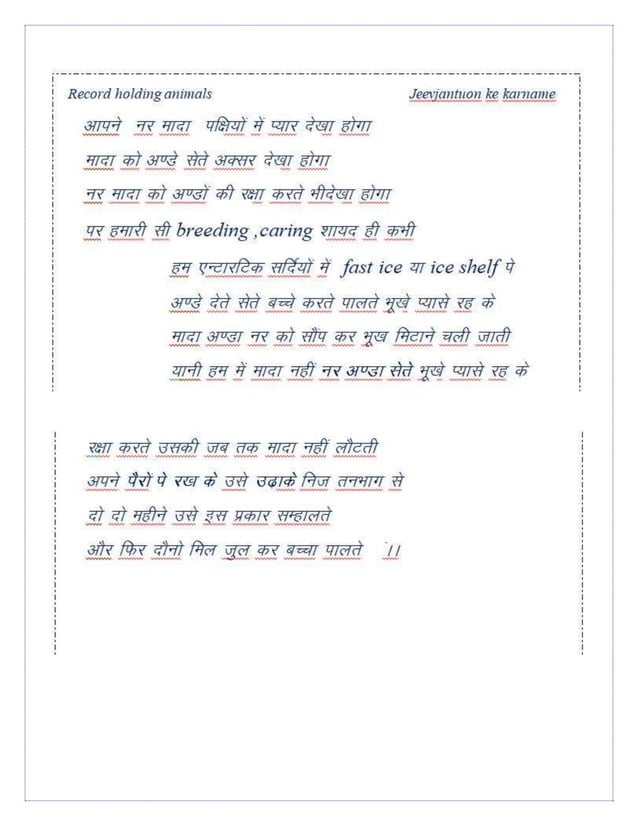 Record holding animals Jeevjantuon ke karname
आपने नर मादा पक्षियों में प्यार देखा होगा
मादा को अण्डे सेते अक्सर देखा होगा
नर मादा को अण्डों की रक्षा करते भीदेखा होगा
पर हमारी सी breeding ,caring शायद ही कभी
हम एन्टारटिक सर्दियों में fast ice या ice shelf पे
अण्डे देते सेते बच्चे करते पालते भूखे प्यासे रह के
मादा अण्डा नर को सौंप कर भूख मिटाने चली जाती
यानी हम में मादा नहीं नर अण्डा सेते भूखे प्यासे रह के
रक्षा करते उसकी जब तक मादा नहीं लौटती
अपने पैरों पे रख के उसे उढ़ाके निज तनभाग से
दो दो महीने उसे इस प्रकार सम्हालते
और फिर दौनो मिल जुल कर बच्चा पालते ।।